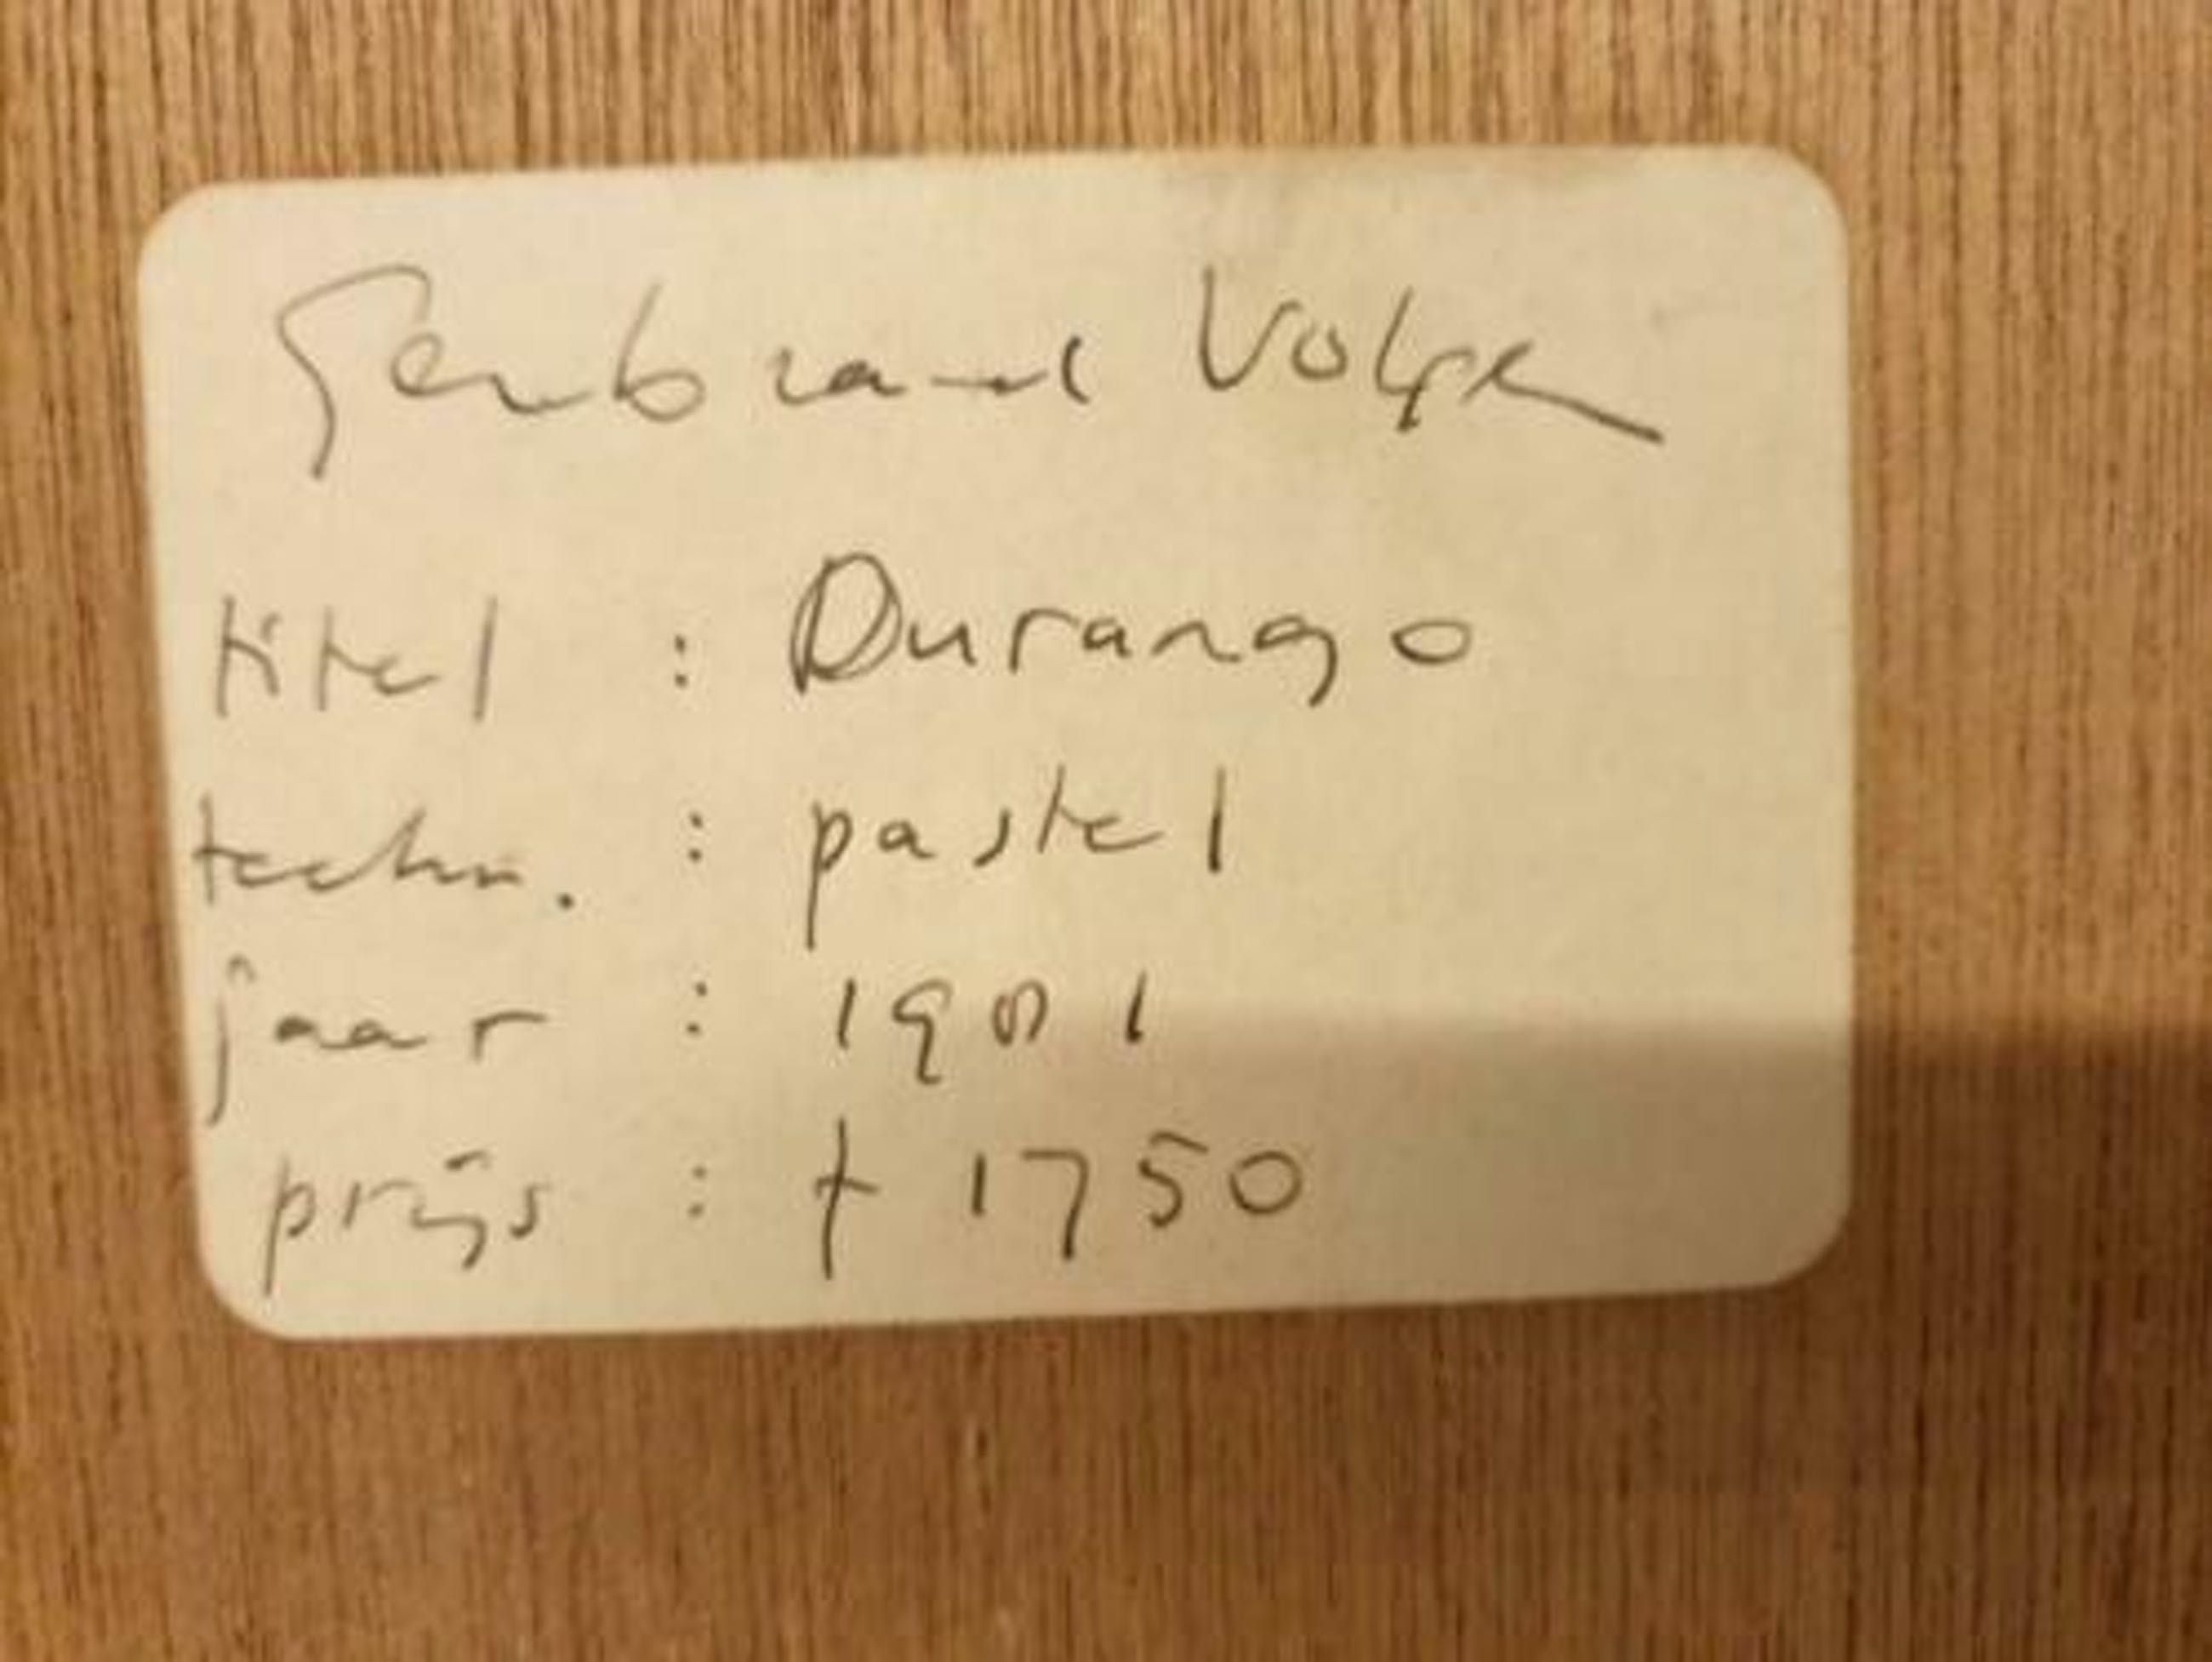 Gerbrand Volger
titel : Durango
techn. : pastel
jaar : 1981
prijs : f 1750